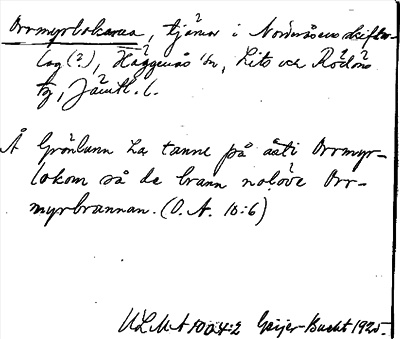 Orrmyrlokarna, tjärnar i Nordåsens skifteslag (?), Häggenås sn, Lits och Rödöns
tg, Jämtl. l.
Å Grönlunn ha tänne på ââti Orrmyr-
lokom så de brann nolöve Orr-
myrbrännan. (O. A. 10:6)
ULMA 1004:2 Geijer-Bucht 1925.